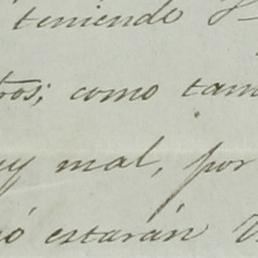 teniendo
tros; como tam
uy mal, por
ó estarán V